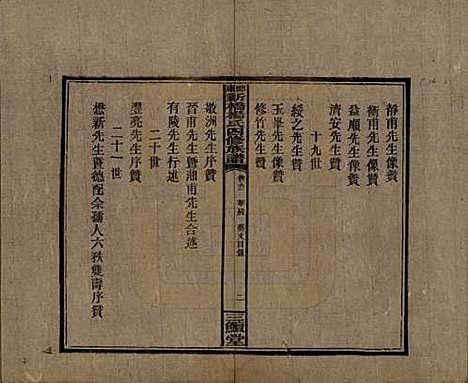 靜甫先生像贊
衛甫先生像贊
益順先生像贊
濟安先生像贊
十九世
綏之先生贊
玉峯先生贊
修竹先生贊
新橋楊氏四修族譜
藝文目錄
二
三鱣堂
敬洲先生序贊
晉甫先生暨湘甫先生合述
有陵先生行述
二十世
豐亮先生序贊
二十一世
懋新先生暨德配余孺人六秩雙壽序贊